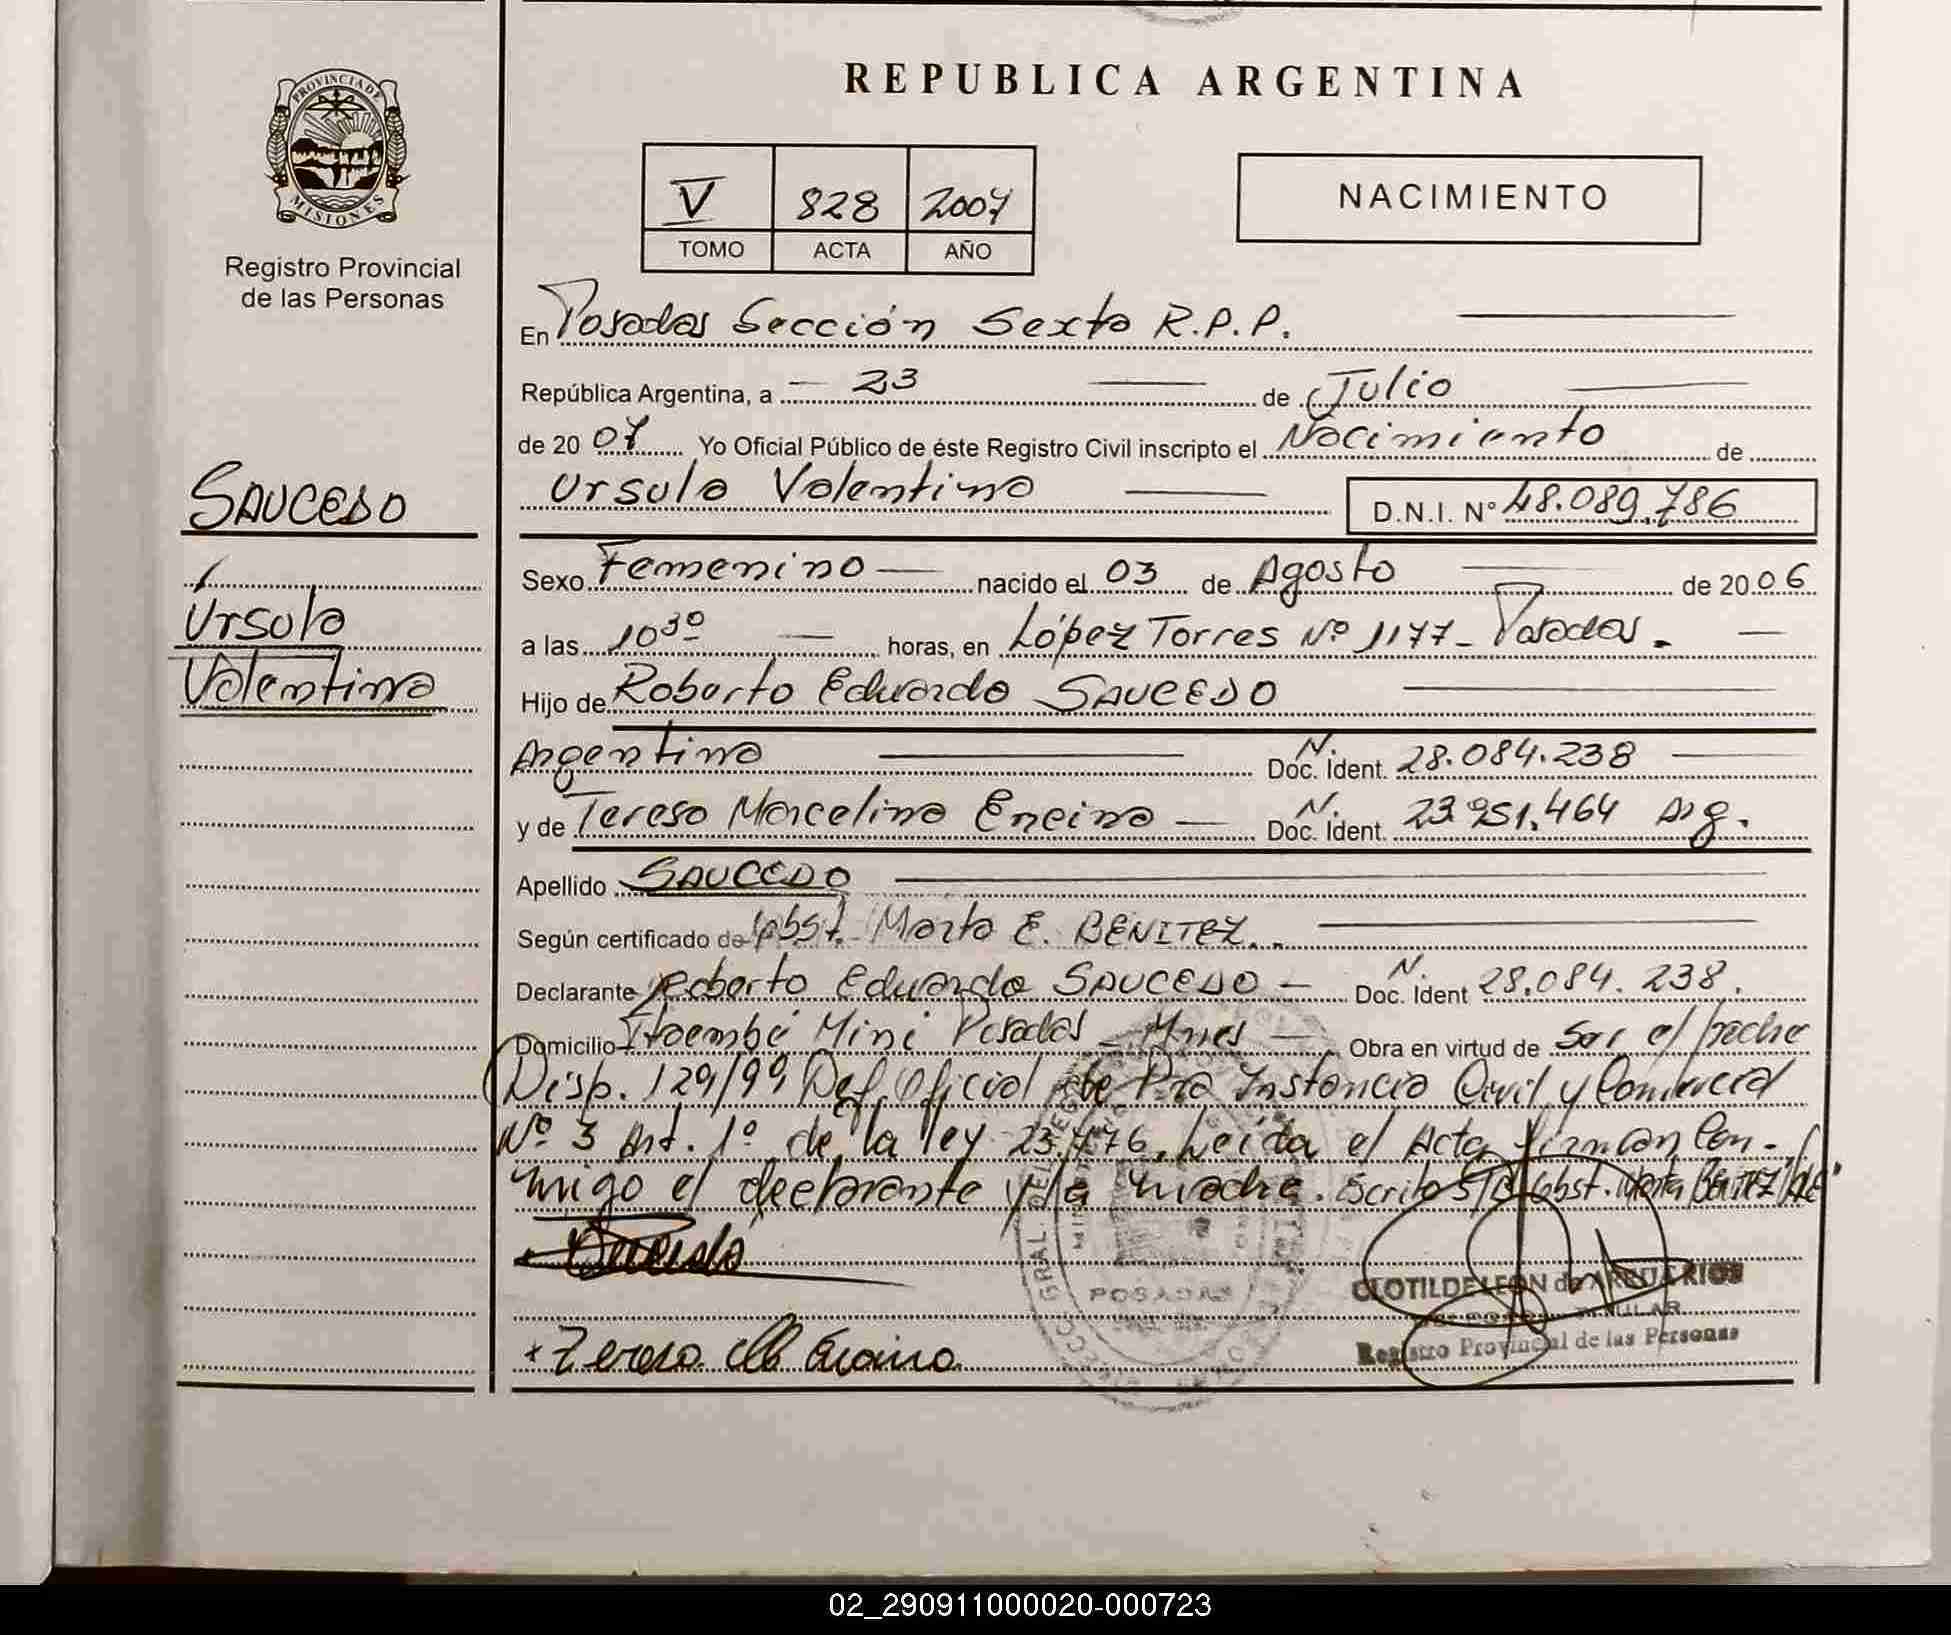 REPUBLICA ARGENTINA
PROVINCIA DE MISIONES
Registro Provincial
de las Personas
V 828 2007
TOMO ACTA AÑO
NACIMIENTO
En Posadas Sección Sexta R.P.P.
República Argentina, a 23 de Julio
de 20 07 Yo Oficial Público de éste Registro Civil inscripto el Nacimiento de
Ursula Valentina D.N.I. N° 48.089.786
SAUCEDO
Ursula
Valentina
Sexo Femenino nacido el 03 de Agosto de 20 06
a las 10 30 horas, en López Torres Nº 1177 - Posadas.
Hijo de Roberto Eduardo SAUCEDO
Argentino N. Doc. Ident. 28.084.238
y de Teresa Marcelina Encina N. Doc. Ident. 23.951.464 Arg.
Apellido SAUCEDO
Según certificado de Obst. Marta E. BENITEZ.
Declarante Roberto Eduardo SAUCEDO - N. Doc. Ident 28.084.238.
Domicilio Itaembé Mini Posadas - Mnes Obra en virtud de Ser el padre
Disp. 129/99 Def. Oficial de Pra Instancia Civil y Comercial
Nº 3 Art. 1º de la ley 23.776. Leída el Acta firman Con-
migo el declarante y la madre. Escrito S/R Obst. Marta BENITEZ
Saucedo
GRAL. DEL REG
POSADAS
CLOTILDE LEON de ARGUARIOS
TITULAR
Registro Provincial de las Personas
+ Teresa M Encina
02_290911000020-000723